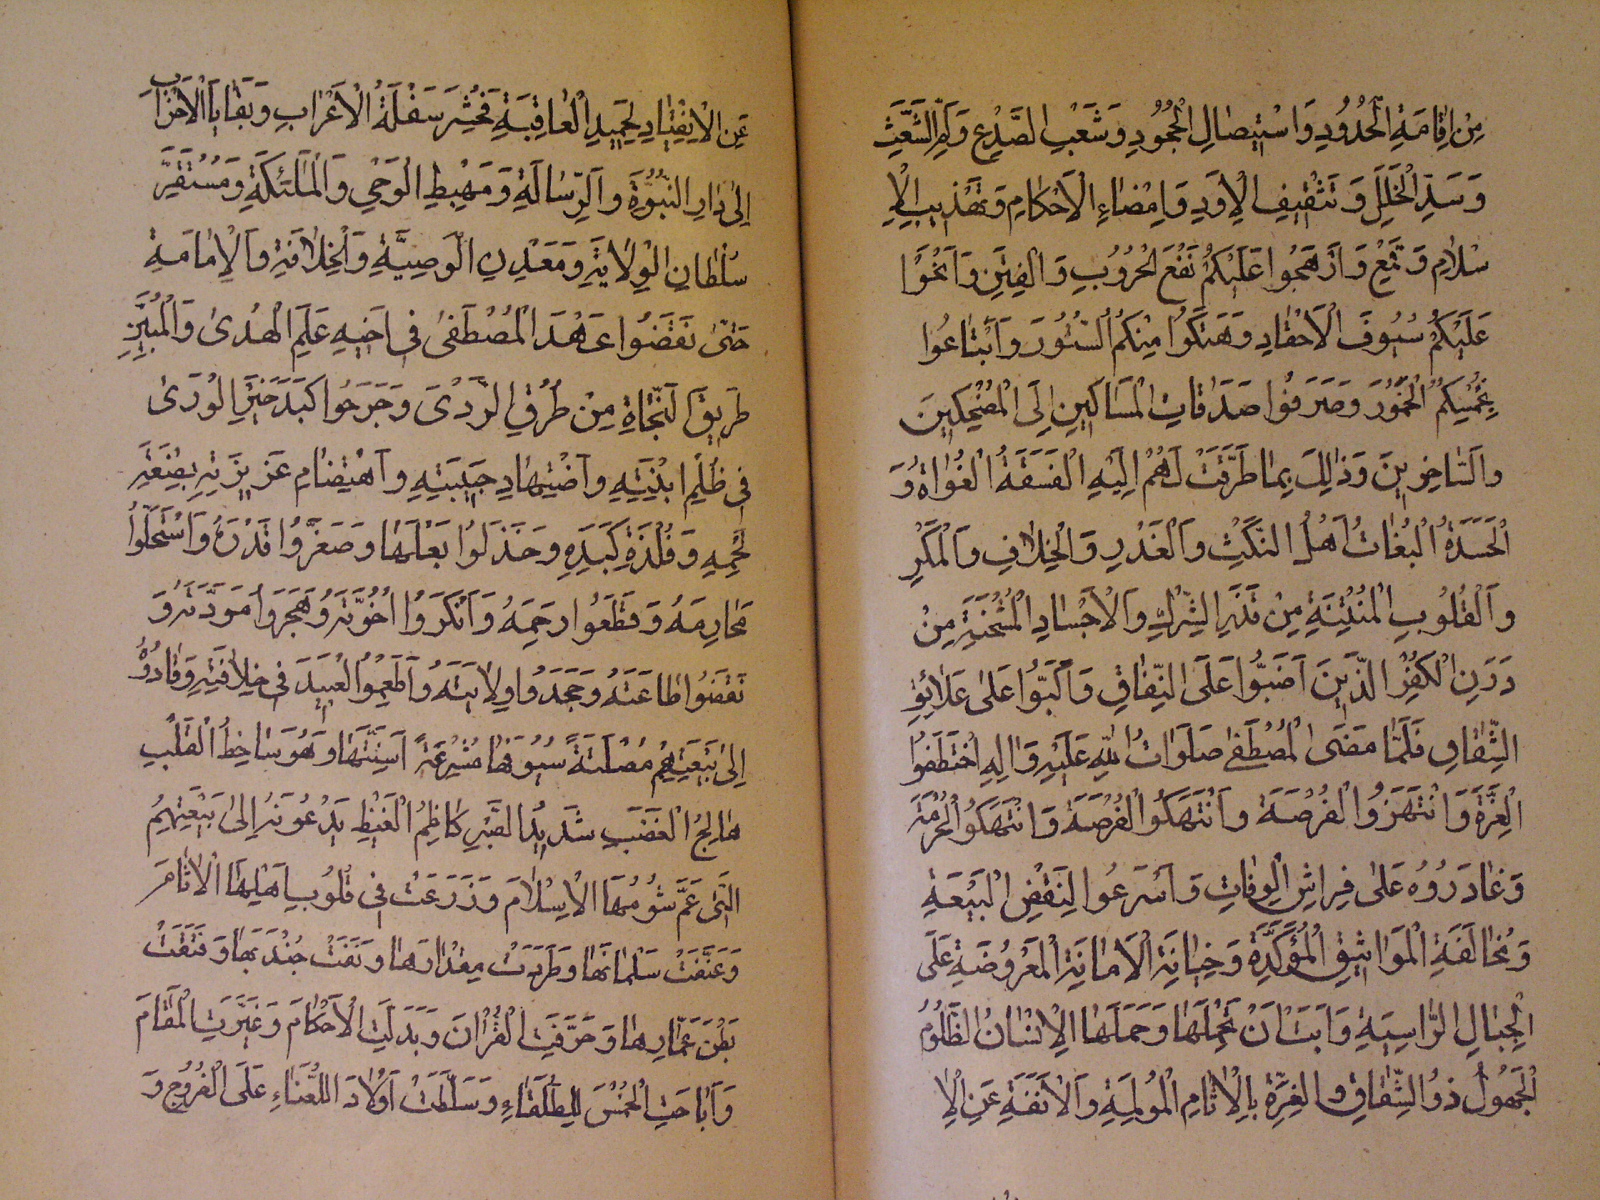 مِنْ اِقٰامَةِ الْحُدُودِ وَاسْتِيصٰالِ الْجُحُودِ وَشَعْبِ الصَّدْعِ وَلَمِّ الشَّعَثِ
وَسَدِّ الْخَلَلِ وَتَثْقِيفِ الْاَوَدِ وَاِمْضٰاءِ الْاَحْكٰامِ وَتَهْذِيبِ الْاِ
سْلٰامِ وَقَمْعِ وَاَرْهَجُوا عَلَيْكُمْ نَقْعَ الْحُرُوبِ وَالْفِتَنِ وَاَنْحَوْا
عَلَيْكُمْ سُيُوفَ الْاَحْقٰادِ وَهَتَكُوا مِنْكُمُ السُّتُورَ وَابْتٰاعُوا
بِخُمْسِكُمُ الْخُمُورَ وَصَرَفُوا صَدَقٰاتِ الْمَسَاكِينِ اِلَى الْمُضْحِكِينَ
وَالسّٰاخِرِينَ وَذٰلِكَ بِمٰا طَرَّقَتْ لَهُمْ اِلَيْهِ الْفَسَقَةُ الْغُوٰاةُ وَ
الْحَسَدَةُ الْبُغٰاتُ اَهْلُ النَّكْثِ وَالْغَدْرِ وَالْخِلٰافِ وَالْمَكْرِ
وَالْقُلُوبِ الْمُنْتِنَةِ مِنْ قَذَرِ الشِّرْكِ وَالْاَجْسٰادِ الْمُشْحَنَةِ مِنْ
دَرَنِ الْكُفْرِ الَّذِينَ اَضَبُّوا عَلَى النِّفٰاقِ وَاَكَبُّوا عَلىٰ عَلٰائِقِ
الشِّقٰاقِ فَلَمّٰا مَضَى الْمُصْطَفىٰ صَلَوٰاتُ اللّٰهِ عَلَيْهِ وَاٰلِهِ اخْتَطَفُوا
الْغِرَّةَ وَانْتَهَزُوا الْفُرْصَةَ وَانْتَهَكُوا الْفُرْصَةَ وَانْتَهَكُوا الْحُرْمَةَ
وَغٰادَرُوهُ عَلىٰ فِرٰاشِ الْوَفٰاتِ وَاَسْرَعُوا لِنَقْضِ الْبَيْعَةِ
وَمُخٰالَفَةِ الْمَوٰاثِيقِ الْمُؤَكَّدَةِ وَخِيٰانَةِ الْاَمٰانَةِ الْمَعْرُوضَةِ عَلَى
الْجِبٰالِ الرّٰاسِيَةِ وَاَبَتْ اَنْ تَحْمِلَهٰا وَحَمَلَهَا الْاِنْسٰانُ الظَّلُومُ
الْجَهُولُ ذُو الشِّقٰاقِ وَالْغِرَّةِ بِالْاٰثٰامِ الْمُولِمَةِ وَالْاَنَفَةِ عَنِ الْاِ
عَنِ الْاِنْقِيٰادِ لِحَمِيدِ الْعٰاقِبَةِ فَحُشِرَ سَفَلَةُ الْاَعْرٰابِ وَبَقٰايَا الْاَحْزٰابِ
اِلىٰ دٰارِ النُّبُوَّةِ وَالرِّسٰالَةِ وَمَهْبِطِ الْوَحْيِ وَالْمَلٰئِكَةِ وَمُسْتَقَرِّ
سُلْطٰانِ الْوِلٰايَةِ وَمَعْدِنِ الْوَصِيَّةِ وَالْخِلٰافَةِ وَالْاِمٰامَةِ
حَتّىٰ نَقَضُوا عَهْدَ الْمُصْطَفىٰ فِي اَخِيهِ عَلَمِ الْهُدىٰ وَالْمُبَيِّنِ
طَرِيقَ النَّجٰاةِ مِنْ طُرُقِ الرَّدىٰ وَجَرَحُوا كَبِدَ خَيْرِ الْوَرىٰ
فِي ظُلْمِ ابْنَتِهِ وَاضْتِهٰادِ حَبِيبَتِهِ وَاهْتِضٰامِ عَزِيزَتِهِ بِضْعَةِ
لَحْمِهِ وَفِلْذَةِ كَبِدِهِ وَخَذَلُوا بَعْلَهٰا وَصَغَّرُوا قَدْرَهُ وَاسْتَحَلُّوا
مَحٰارِمَهُ وَقَطَعُوا رَحِمَهُ وَاَنْكَرُوا اُخُوَّتَهُ وَهَجَرُوا مَوَدَّتَهُ وَ
نَقَضُوا طٰاعَتَهُ وَجَحَدُوا وِلٰايَتَهُ وَاَطْمَعُوا الْعَبِيدَ فِي خِلٰافَتِهِ وَقٰادُوهُ
اِلىٰ بَيْعَتِهِمْ مُصْلَتَةً سُيُوفَهٰا مُشْرِعَةً اَسِنَّتَهٰا وَهُوَ سٰاخِطُ الْقَلْبِ
هٰائِجُ الْغَضَبِ شَدِيدُ الصَّبْرِ كٰاظِمُ الْغَيْظِ يَدْعُونَهُ اِلىٰ بَيْعَتِهِمُ
الَّتِي عَمَّ شُومُهَا الْاِسْلٰامَ وَزَرَعَتْ فِي قُلُوبِ اَهْلِهَا الْاٰثٰامَ
وَعَنَّفَتْ سَلْمٰانَهٰا وَطَرَدَتْ مِقْدٰادَهٰا وَنَفَتْ جُنْدَبَهٰا وَفَتَقَتْ
بَطْنَ عَمّٰارِهٰا وَحَرَّفَتِ الْقُرْاٰنَ وَبَدَّلَتِ الْاَحْكٰامَ وَغَيَّرَتِ الْمَقٰامَ
وَاَبٰاحَتِ الْخُمْسَ لِلطُّلَقٰاءِ وَسَلَّطَتْ اَوْلٰادَ اللُّعَنٰاءِ عَلَى الْفُرُوجِ وَ